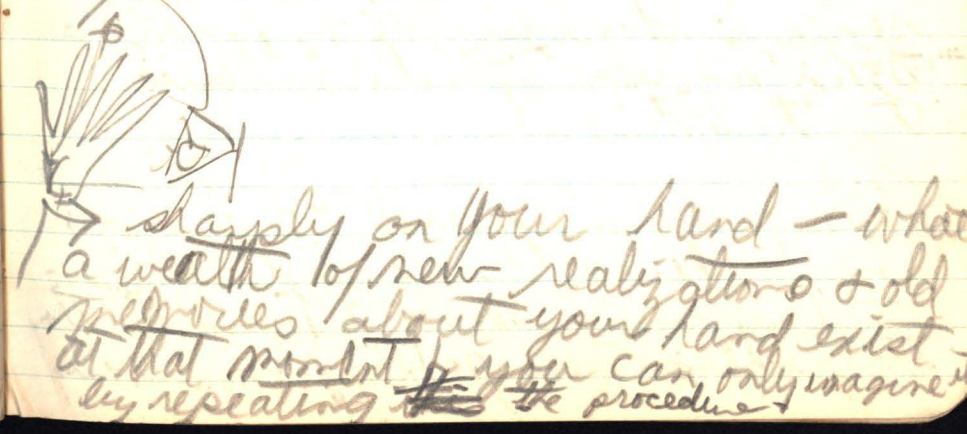 sharply on your hand – what
a wealth of new realizations & old
memories about your hand exist
at that moment you can only imagine
by repeating the procedure.